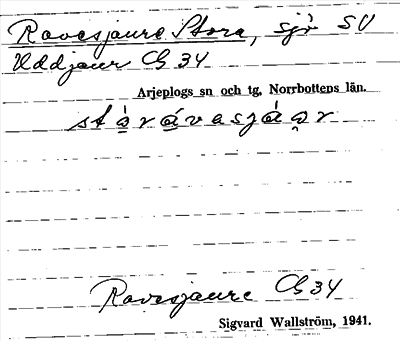 Ravesjaure Stora, sjö SV
Uddjaur C 34
Arjeplogs sn och tg, Norrbottens län.
stàrávasjáạr
Ravesjaure C 34
Sigvard Wallström, 1941.